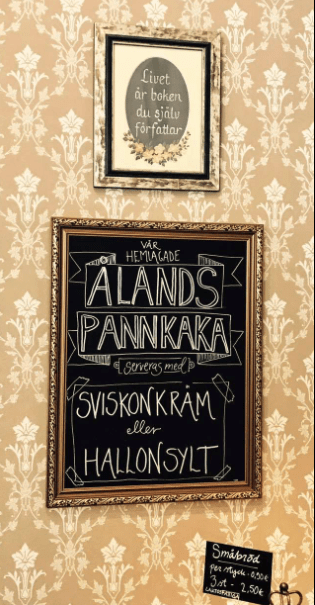 Livet
är boken
du själv
författar
VÅR
HEMLAGADE
ÅLANDS
PANNKAKA
serveras med
SVISKONKRÄM
eller
HALLONSYLT
Småbröd
per styck - 0,90€
3 st - 2,50€